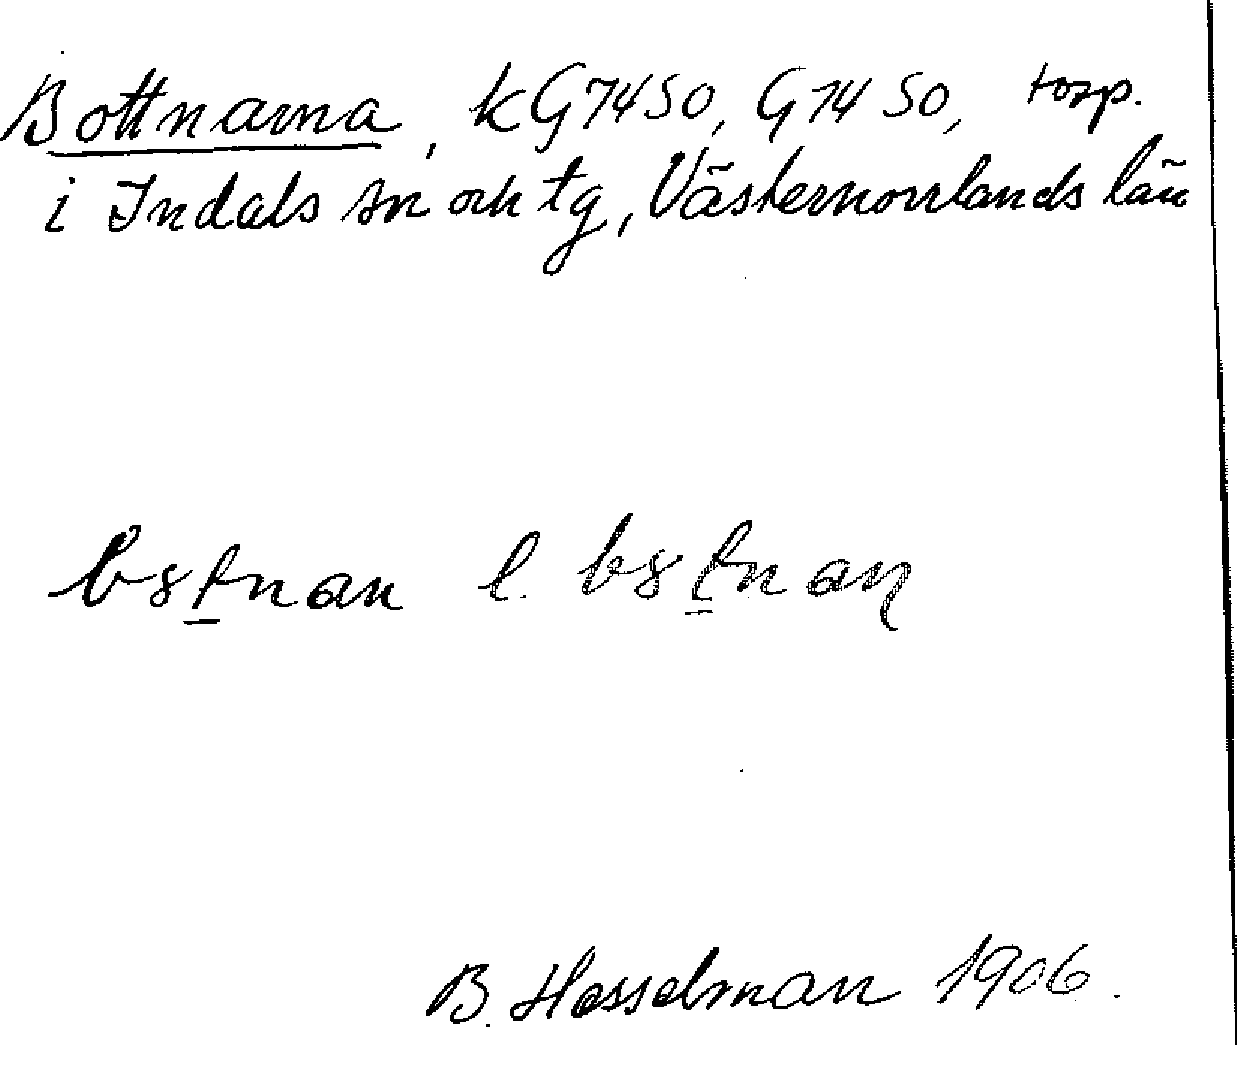 Bottnarna, kG7450, G7450, torp.
i Indals sn och tg, Västernorrlands län
l.
B. Hesselman 1906.